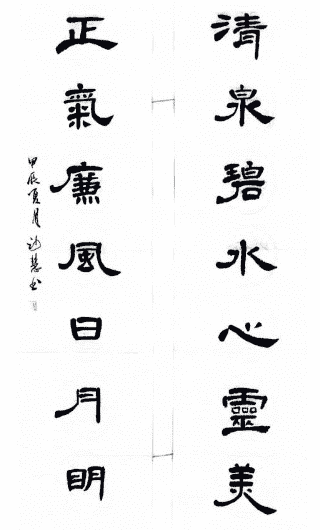 清泉碧水心靈美
正氣廉風日月明
甲辰夏月